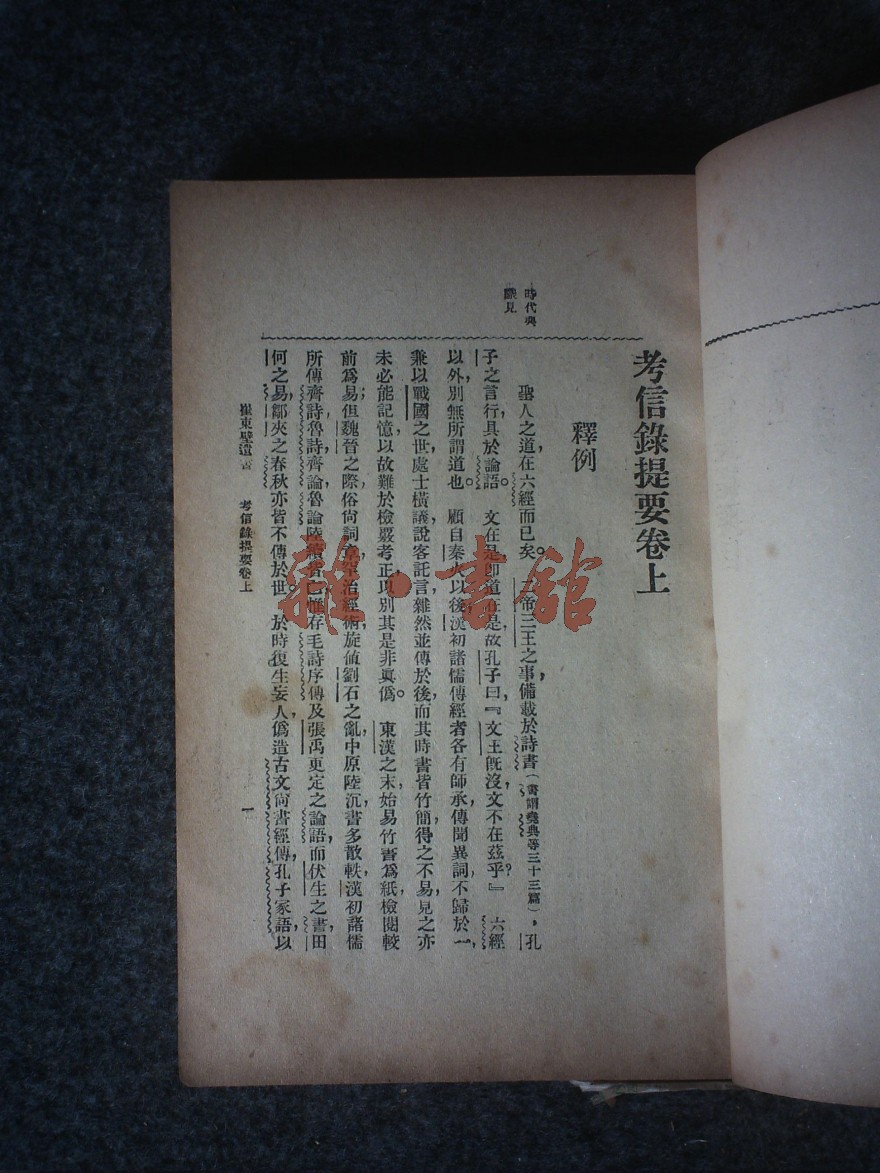 考信錄提要卷上
釋例
時代與
識見
聖人之道,在六經而已矣。二帝三王之事,備載於詩書(書謂堯典等三十三篇),孔
子之言行,具於論語。文在是,卽道在是,故孔子曰,『文王旣沒,文不在茲乎?』六經
以外,別無所謂道也。顧自秦火以後,漢初諸儒傳經者各有師承,傳聞異詞,不歸於一,
兼以戰國之世,處士橫議,說客託言,雜然並傳於後,而其時書皆竹簡,得之不易,見之亦
未必能記憶,以故難於檢覈考正,以別其是非眞僞。東漢之末,始易竹書爲紙,檢閱較
前爲易;但魏晉之際,俗尙詞章,罕治經術,旋値劉石之亂,中原陸沉,書多散軼,漢初諸儒
所傳齊詩魯詩齊論魯論陸續皆亡,惟存毛詩序傳及張禹更定之論語,而伏生之書,田
何之易,鄒夾之春秋亦皆不傳於世。於時復生妄人,僞造古文尙書經傳,孔子家語,以
崔東壁遺書 考信錄提要卷上
一
雜·書館